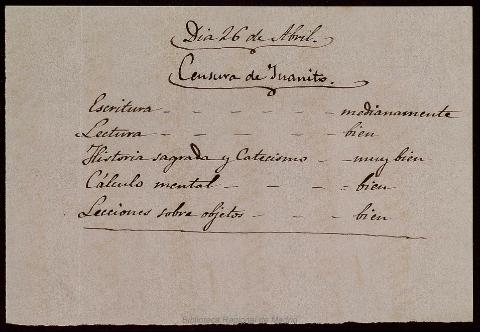 Dia 26 de Abril.
Censura de Juanito.
Escritura - - - - - - medianamente
Lectura - - - - - - bien
Historia sagrada y Catecismo - - muy bien
Cálculo mental - - - - - bien
Lecciones sobre objetos - - - - bien
Biblioteca Regional de Madrid